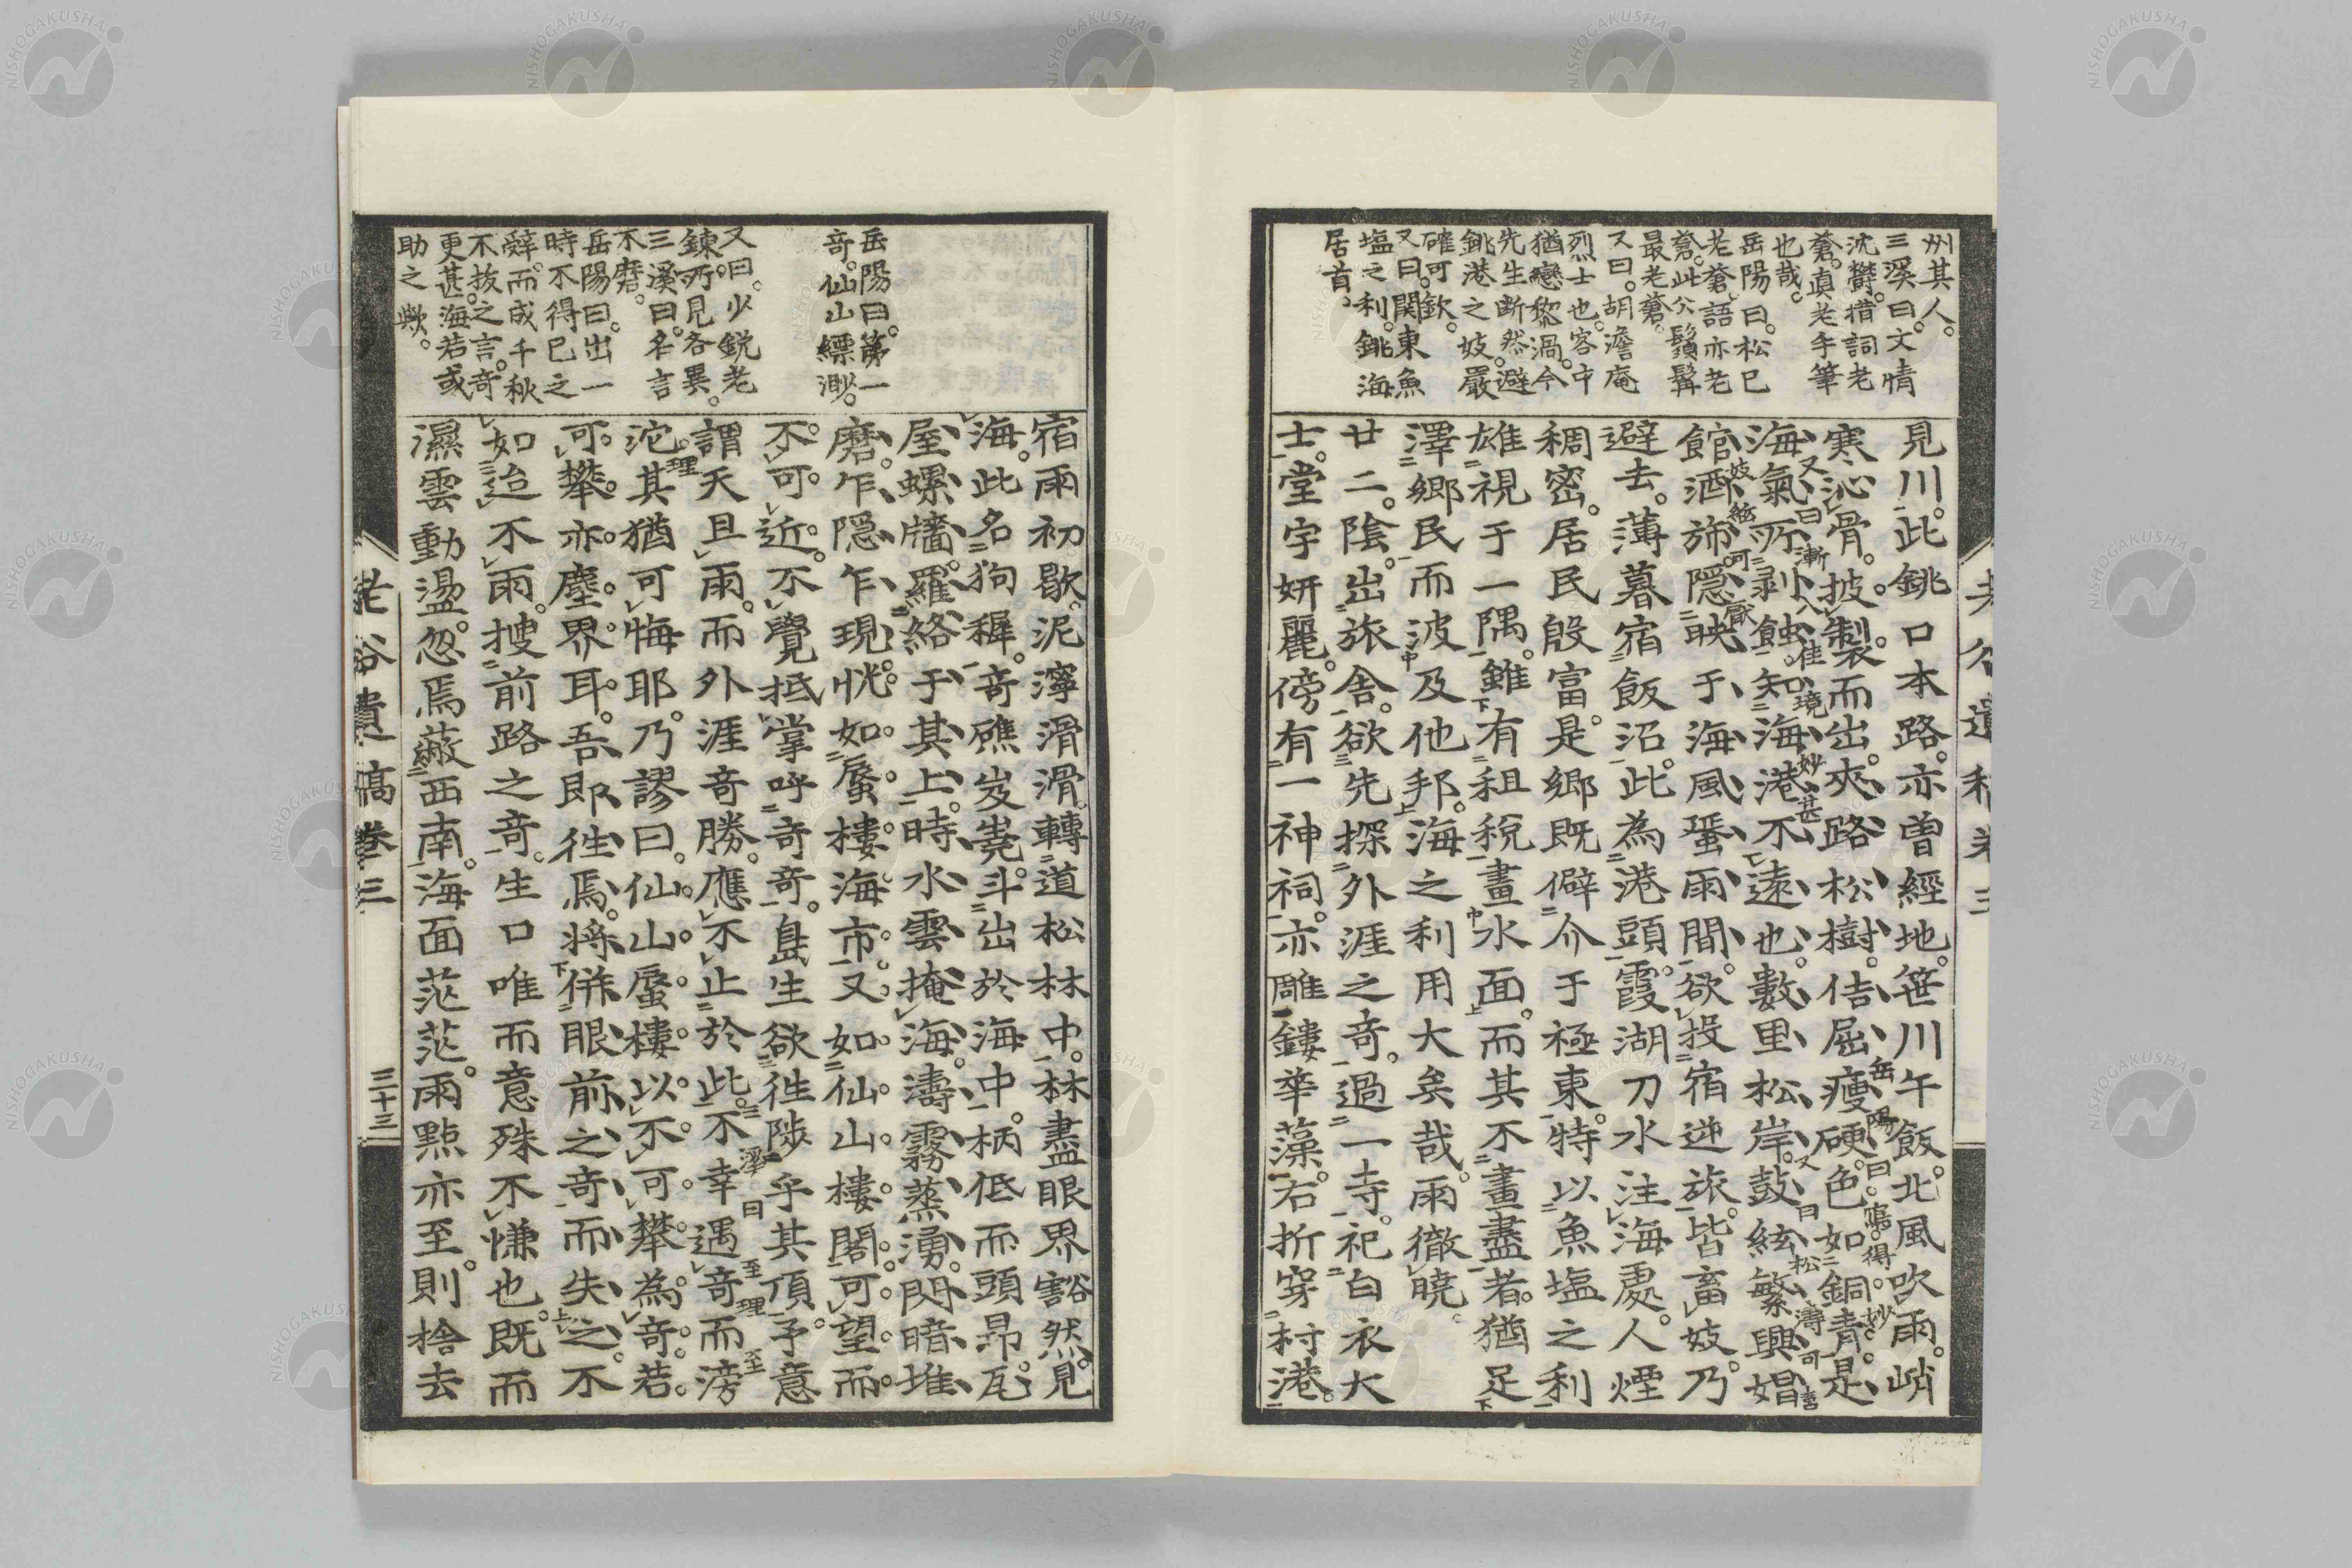 州其人。
三溪曰。文情
沈鬱。措詞老
蒼。眞老手筆
也哉。
岳陽曰。松已
老蒼。語亦老
蒼。此公鬚髯
最老蒼。
又曰。胡澹庵
烈士也。客中
猶戀黎渦。今
先生断然避
銚港之妓。嚴
確可欽。
又曰。関東魚
塩之利。銚海
居首。
見川。此銚口本路。亦曽經地。笹川午飯。北風吹雨。峭
寒沁骨。披製而出。夾路松樹。佶屈瘦硬。色如銅青。是
岳陽曰。寫得妙
海氣所剥蝕。知海港不遠也。數里松岸。鼓絃繁興。娼
又曰漸入佳境妙甚
又曰松濤可喜
館酒旆。隠映于海風蜑雨間。欲投宿逆旅。皆畜妓。乃
妓絃可厭
避去。薄暮宿飯沼。此為港頭。霞湖刀水注海處。人煙
稠密。居民殷富。是郷既僻介于極東。特以魚塩之利
雄視于一隅。雖有租税畫水面。而其不畫盡者。猶足
澤郷民而波及他邦。海之利用大矣哉。雨徹曉。
廿二。陰。出旅舎。欲先探外涯之奇。過一寺。祀白衣大
士。堂宇妍麗。傍有一神祠。亦雕鏤華藻。右折穿村港。
岳陽曰。第一
奇。仙山縹渺。
又曰。少鋭老
錬。所見各異。
三溪曰。名言
不磨。
岳陽曰。出一
時不得已之
辤。而成千秋
不抜之言。奇
更甚。海若或
助之歟。
宿雨初歇。泥濘滑滑。轉道松林中。林盡眼界豁然。見
海。此名狗穉。奇礁岌嶤。斗出於海中。柄低而頭昂。瓦
屋螺牆。羅絡于其上。時水雲掩海。濤霧蒸湧。閃暗堆
磨。乍隠乍現。恍如蜃樓海市。又如仙山樓閣。可望而
不可近。不覺抵掌呼奇奇。島生欲徃陟乎其頂。予意
謂天且雨。而外涯奇勝。應不止於此。不幸遇奇而滂
澤曰至理至理
沱。其猶可悔耶。乃謬曰。仙山蜃樓。以不可攀為奇。若
可攀。亦塵界耳。吾郎徃焉。将併眼前之奇而失之。不
如迨不雨。捜前路之奇。生口唯而意殊不慊也。既而
濕雲動盪。忽焉蔽西南。海面茫茫。雨點亦至。則捨去
老谷遺稿卷三
三十三